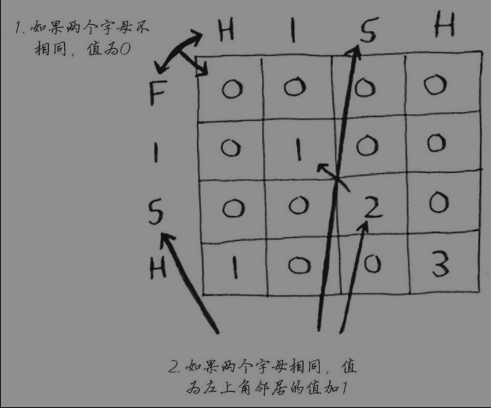 1. 如果两个字母不
相同，值为0
H I S H
F 0 0 0 0
I 0 1 0 0
S 0 0 2 0
H 1 0 0 3
2. 如果两个字母相同，值
为左上角邻居的值加1